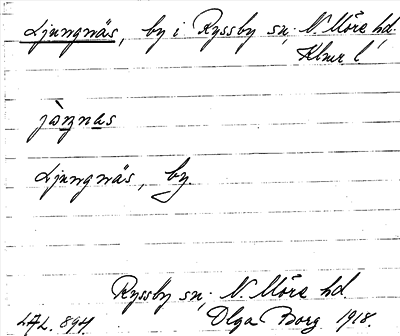 Ljungnäs, by i Ryssby sn, N. Möre hd.
Klmr l.
jòngnas
Ljungnäs, by.
Ryssby sn, N. Möre hd.
LAL. 894. Olga Borg 1918.